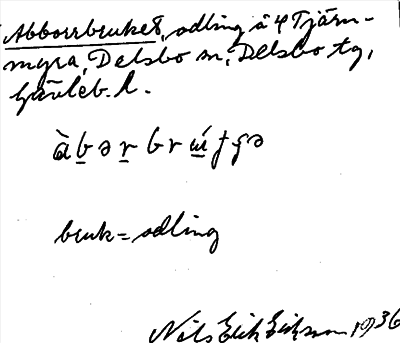 Abborrbruket, odling å 4 Tjärn-
myra, Delsbo sn, Delsbo tg,
Gävleb. l.
bruk = odling
Nils Erik Eriksson 1936